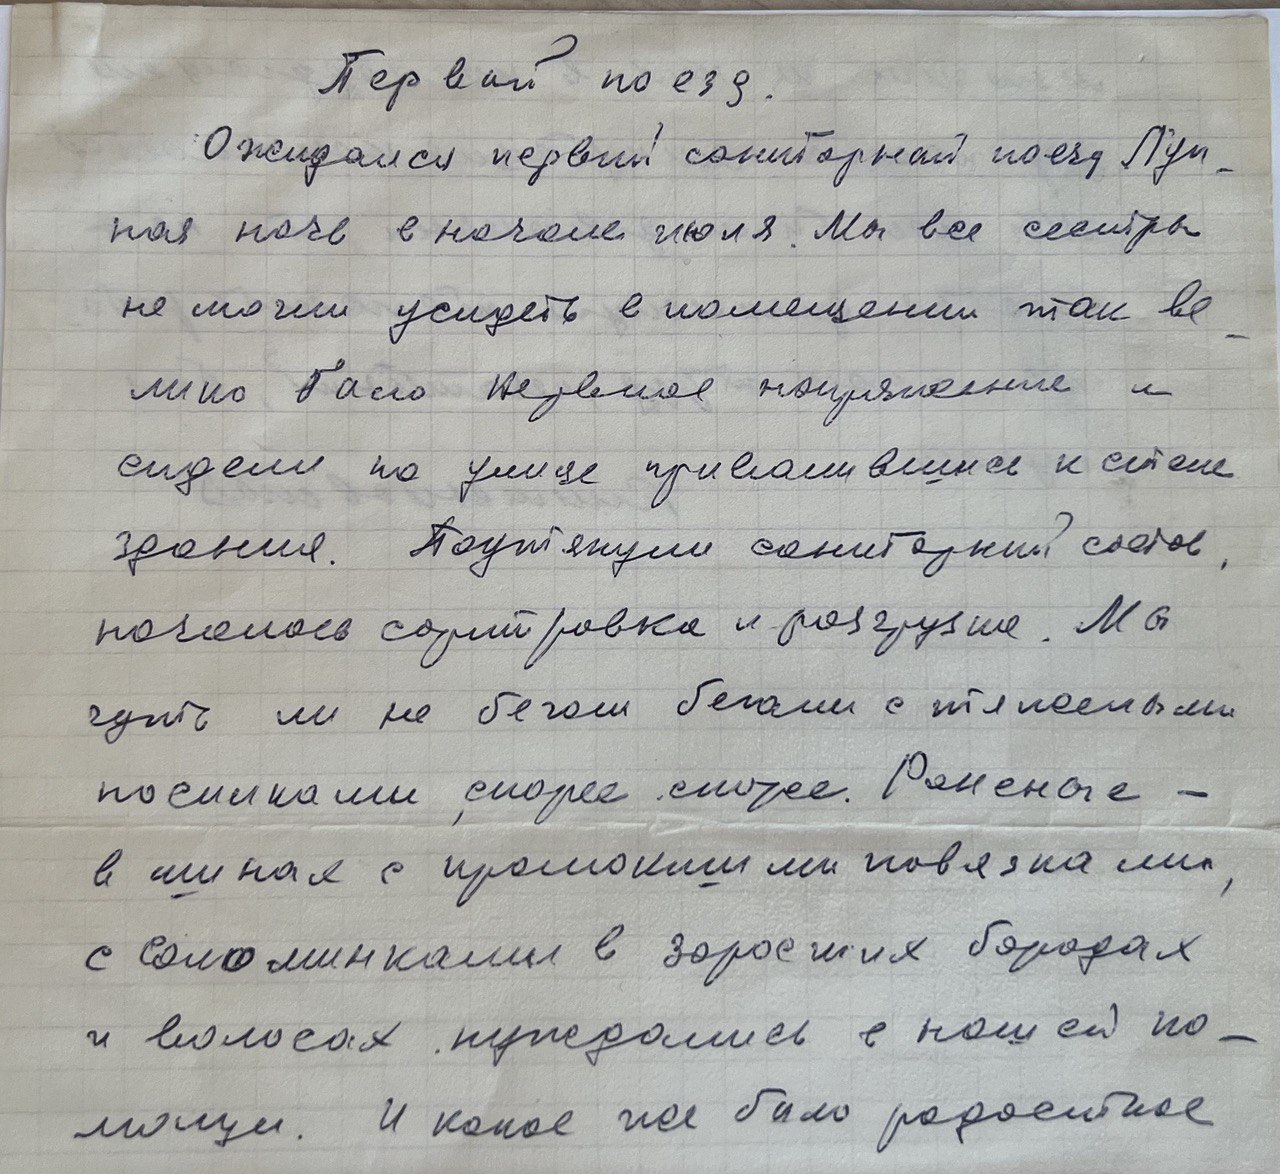 Первый поезд.
Ожидался первый санитарный поезд Лун-
ная ночь в начале июля. Мы все сестры
не могли усидеть в помещении так ве-
лико было нервное напряжение и
сидели на улице привалившись к стене
здания. Подтянули санитарный состав,
началась сортировка и разгрузка. Мы
чуть ли не бегом бегали с тяжелыми
носилками, скорее скорее. Раненые -
в шинах с промокшими повязками,
с соломинками в заросших бородах
и волосах нуждались в нашей по-
мощи. И какое же было радостное